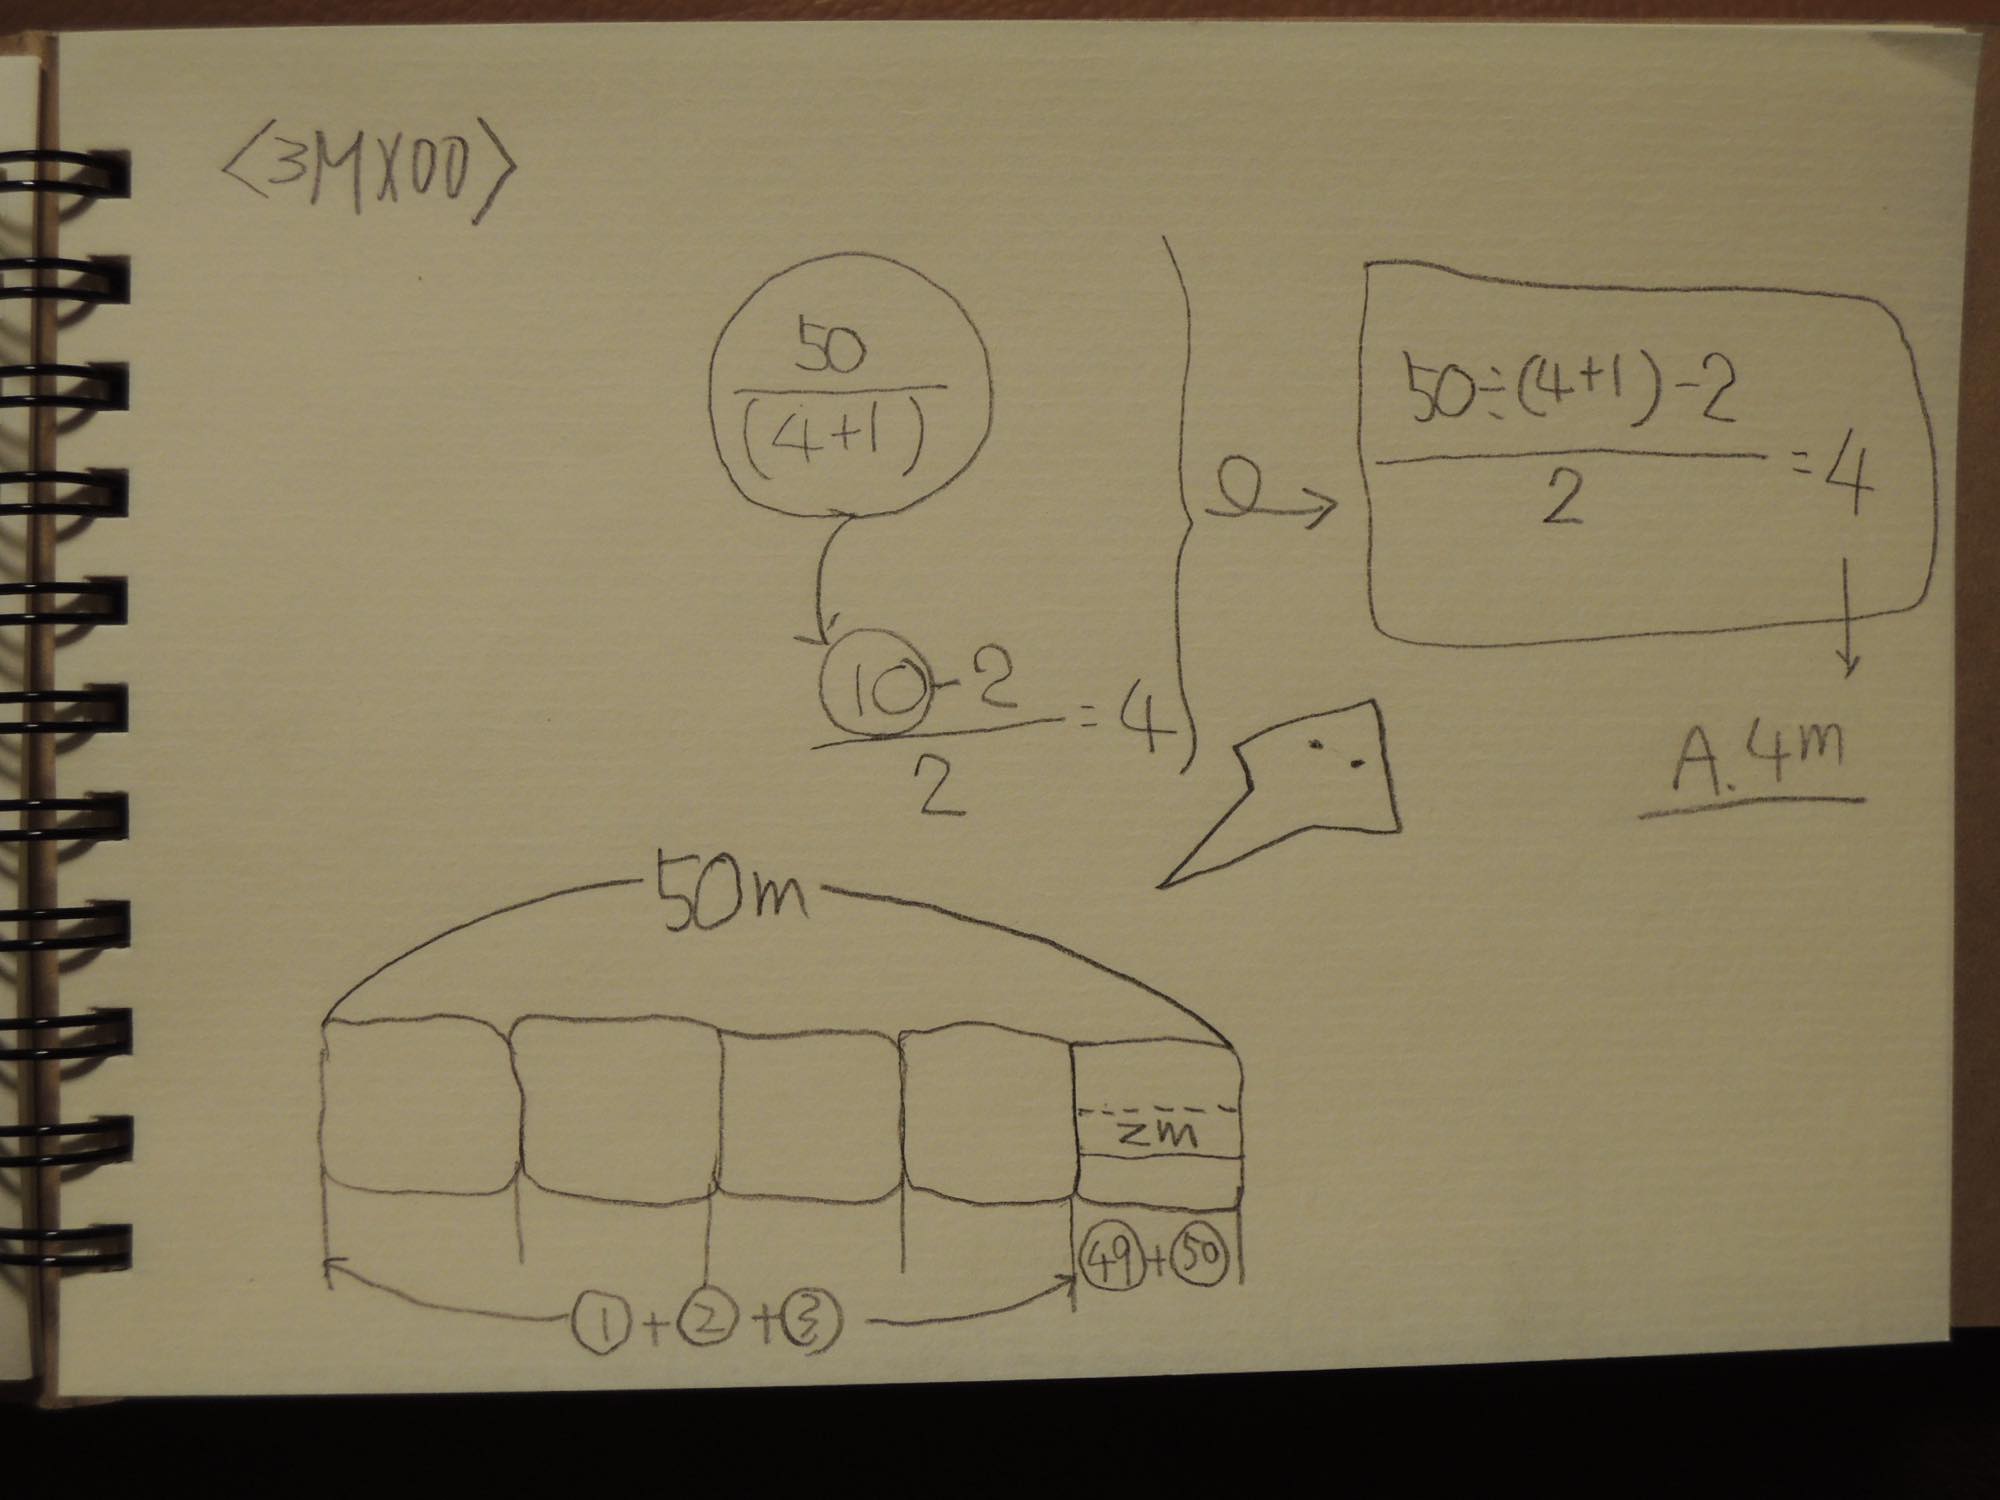 〈3MX00〉
50
(4+1)
10-2
2
=4
50÷(4+1)-2
2
=4
A.4m
50m
2m
㊾+㊿
①+②+③